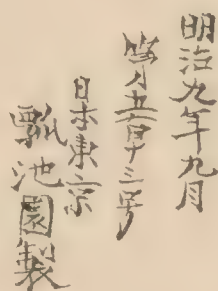 明治九年九月
第五百十三号
日本東京
瓢池園製